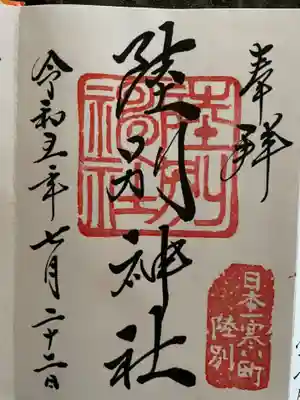 奉拝
陸別神社
陸別神社
日本一寒い町
陸別
令和五年七月二十二日